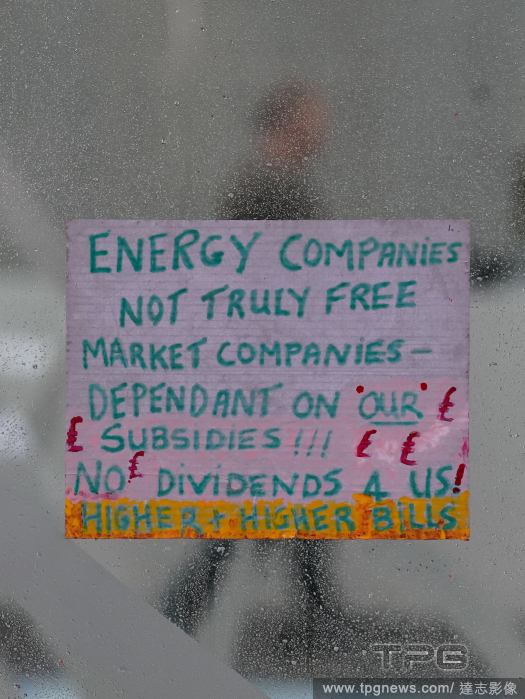 ENERGY COMPANIES
NOT TRULY FREE
MARKET COMPANIES -
DEPENDANT ON OUR £
£ SUBSIDIES !!! £ £
NO £ DIVIDENDS 4 US!
HIGHER + HIGHER BILLS
TPG
www.tpgnews.com/ 達志影像